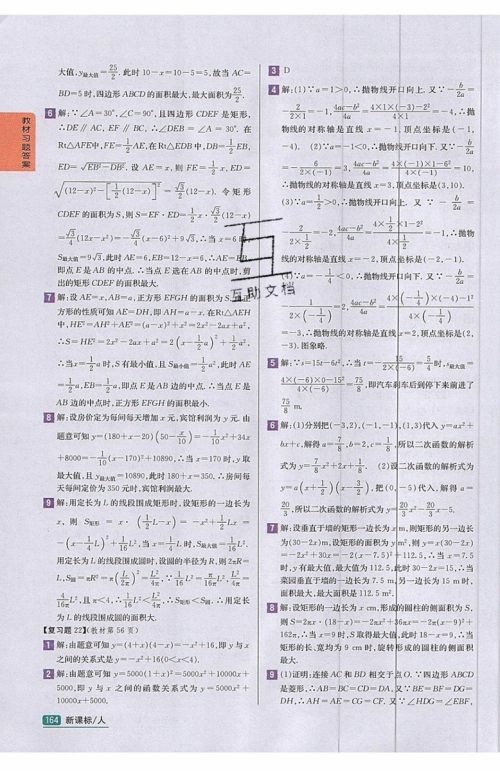 大值,y最大值=25/2. 此时 10-x=10-5=5,故当 AC=
BD=5 时,四边形 ABCD 的面积最大,最大面积为25/2.
6 解:∵∠A=30°,∠C=90°,且四边形 CDEF 是矩形,
∴DE∥AC, EF∥BC, ∴∠DEB=∠A=30°. 在
Rt△AFE中,FE=1/2AE,在Rt△EDB中,DB=1/2EB,
ED=√(EB²-DB²). 设 AE=x,则 FE=1/2x, ED=
√((12-x)²-[1/2(12-x)]²)=√3/2(12-x). 令矩形
CDEF 的面积为 S,则 S=EF·ED=1/2x·√3/2(12-x)
=√3/4(12x-x²)=-√3/4(x-6)²+9√3,∴当 x=6 时,
S最大值=9√3,此时 AE=6,EB=12-x=6,∴AE=EB,
即点 E 是 AB 的中点. ∴当点 E 选在 AB 的中点时,剪
出的矩形 CDEF 的面积最大.
7 解:设 AE=x,AB=a,正方形 EFGH 的面积为 S,由正
方形的性质可知 AE=DH,即 AH=a-x. 在Rt△AEH
中,HE²=AH²+AE²=(a-x)²+x²=2x²-2ax+a²,
∴S=HE²=2x²-2ax+a²=2(x-1/2a)²+1/2a².
∴当x=1/2a时,S 有最小值,且 S最小值=1/2a²,此时 AE
=1/2a,EB=1/2a,即点 E 是 AB 边的中点. ∴当点 E 是
AB 边的中点时,正方形 EFGH 的面积最小.
8 解:设房价定为每间每天增加 x 元,宾馆利润为 y 元. 由
题意可知 y=(180+x-20)(50-x/10)=-1/10x²+34x
+8000=-1/10(x-170)²+10890,∴当 x=170 时,y 取
最大值,且 y最大值=10890,此时 180+x=350. ∴房间每
天每间定价为 350 元时,宾馆利润最大.
9 解:用定长为 L 的线段围成矩形时,设矩形的一边长为
x,则 S矩形=x·(1/2L-x)=-x²+1/2Lx=
-(x-1/4L)²+1/16L². 当 x=1/4L 时,S最大值=1/16L².
用定长为 L 的线段围成圆时,设圆的半径为 R,则 2πR=
L,S圆=πR²=π(L/2π)²=L²/4π. ∵1/16L²=πL²/16π, L²/4π=
4/16πL²,且 π<4,∴1/16L²<L²/4π,∴S矩形<S圆. ∴用定长
为 L 的线段围成圆的面积大.
【复习题 22】(教材第 56 页)
1 解:由题意可知 y=(4+x)(4-x)=-x²+16,即 y 与 x
之间的关系式是 y=-x²+16(0<x<4).
2 解:由题意可知 y=5000(1+x)²=5000x²+10000x+
5000,即 y 与 x 之间的函数关系式为 y=5000x²+
10000x+5000.
3 D
4 解:(1)∵a=1>0,∴抛物线开口向上. 又∵-b/2a=
-2/(2×1)=-1,(4ac-b²)/4a=(4×1×(-3)-2²)/(4×1)=-4,∴抛
物线的对称轴是直线 x=-1,顶点坐标是(-1,
-4). (2)∵a=-1<0,∴抛物线开口向下. 又∵-b/2a=
-6/(2×(-1))=3,(4ac-b²)/4a=(4×(-1)×1-6²)/(4×(-1))=10,
∴抛物线的对称轴是直线 x=3,顶点坐标是(3,10).
(3)∵a=1/2>0,∴抛物线开口向上. 又∵-b/2a=
-2/(2×1/2)=-2,(4ac-b²)/4a=(4×1/2×1-2²)/(4×1/2)=-1,∴抛物
线的对称轴是直线 x=-2,顶点坐标是(-2,-1).
(4)∵a=-1/4<0,∴抛物线开口向下. 又∵-b/2a=
-1/(2×(-1/4))=2,(4ac-b²)/4a=(4×(-1/4)×(-4)-1²)/(4×(-1/4))
=-3,∴抛物线的对称轴是直线 x=2,顶点坐标是(2,
-3). 图象略.
5 解:∵s=15t-6t²,∴当 t=-15/(2×(-6))=5/4时,s最大值=
(4×(-6)×0-15²)/(4×(-6))=75/8,即汽车刹车后到停下来前进了
75/8 m.
6 解:(1)分别把(-3,2),(-1,-1),(1,3)代入 y=ax²+
bx+c,解得 a=7/8,b=2,c=1/8,所以二次函数的解析
式为 y=7/8x²+2x+1/8. (2)设二次函数的解析式为
y=a(x+1/2)(x-3/2),把(0,-5)代入,解得 a=
20/3,所以二次函数的解析式为 y=20/3x²-20/3x-5.
7 解:设垂直于墙的矩形一边长为 x m,则矩形的另一边长
为(30-2x)m,设矩形的面积为 y m²,则 y=x(30-2x)
=-2x²+30x=-2(x-7.5)²+112.5,∴当 x=7.5
时,y 有最大值,最大值为 112.5,此时 30-2x=15,∴当
菜园垂直于墙的一边长为 7.5 m,另一边长为 15 m 时,
面积最大,最大面积是 112.5 m².
8 解:设矩形的一边长为 x cm,形成的圆柱的侧面积为 S,
则 S=2πx·(18-x)=-2πx²+36πx=-2π(x-9)²+
162π,∴当 x=9 时,S 取得最大值,此时 18-x=9,∴当
矩形的长、宽均为 9 cm 时,旋转形成的圆柱的侧面积
最大.
9 (1)证明:连接 AC 和 BD 相交于点 O. ∵四边形 ABCD
是菱形,∴AB=BC=CD=DA. 又∵BE=BF=DG=
DH,∴AH=AE=CG=CF. 又∵∠HDG=∠EBF,
教材习题答案
互助文档
164 新课标/人